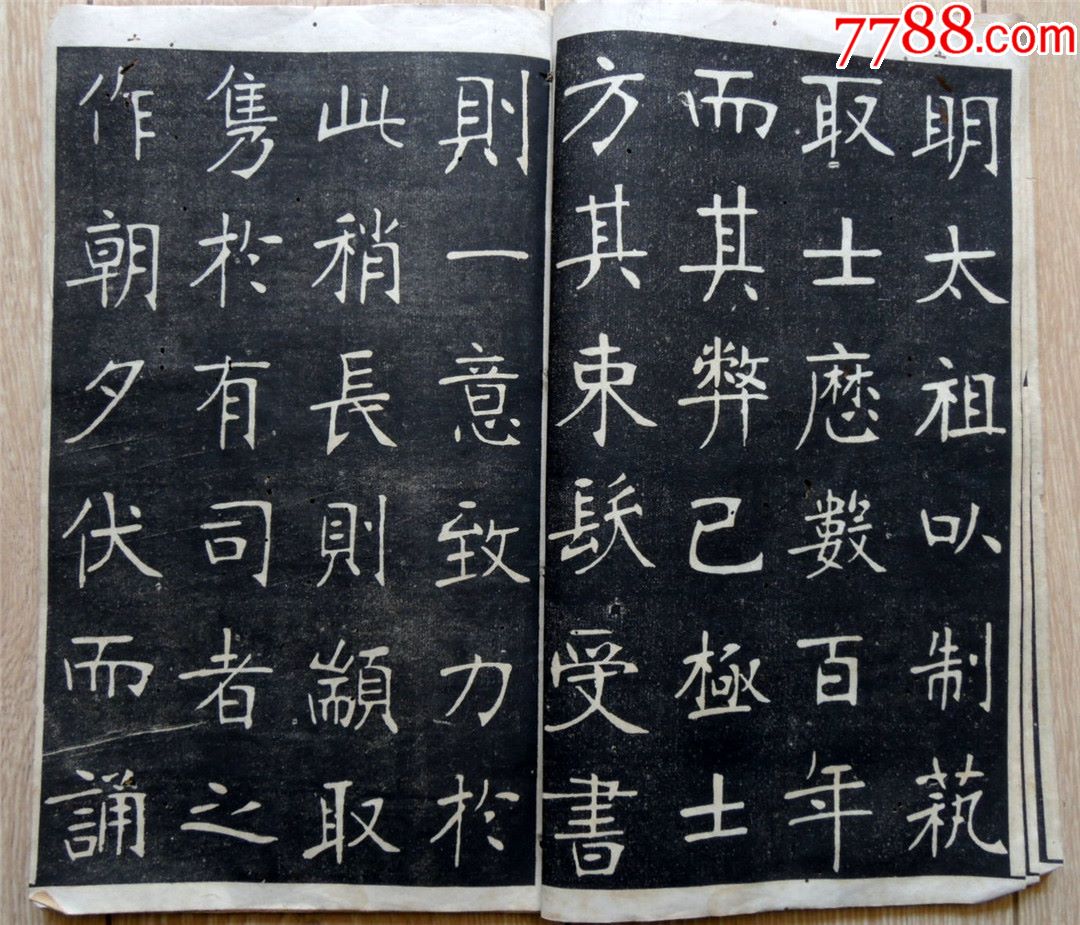 7788.com
明太祖以制蓺
取士歷數百年
而其弊已極士
方其束髮受書
則一意致力於
此稍長則顓取
雋於有司者之
作朝夕伏而誦